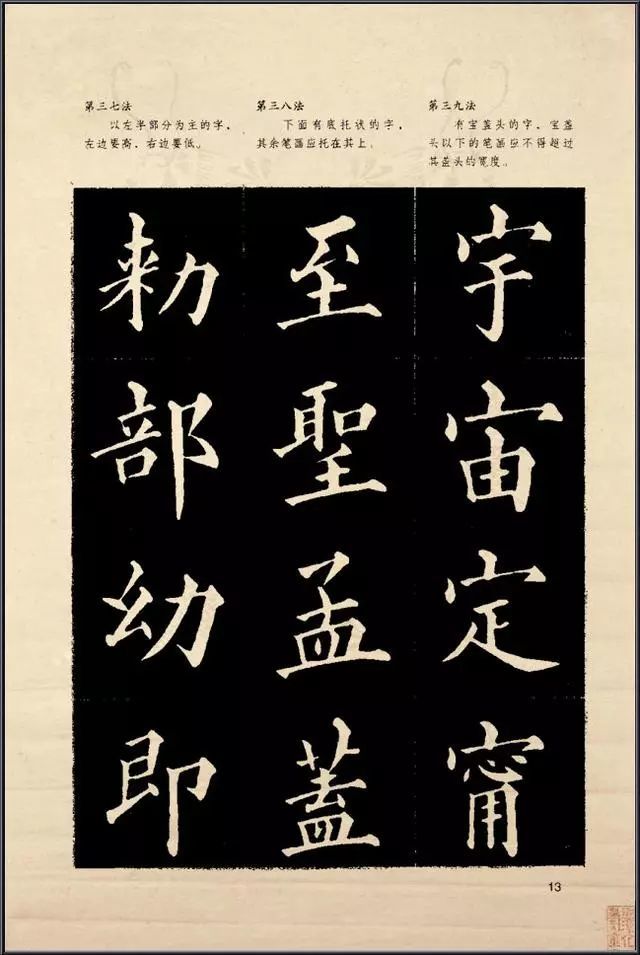 第三七法
以左半部分为主的字，
左边要高，右边要低。
第三八法
下面有底托状的字，
其余笔画应托在其上。
第三九法
有宝盖头的字，宝盖
头以下的笔画应不得超过
其盖头的宽度。
勅部幼即
至聖孟蓋
宇宙定甯
13